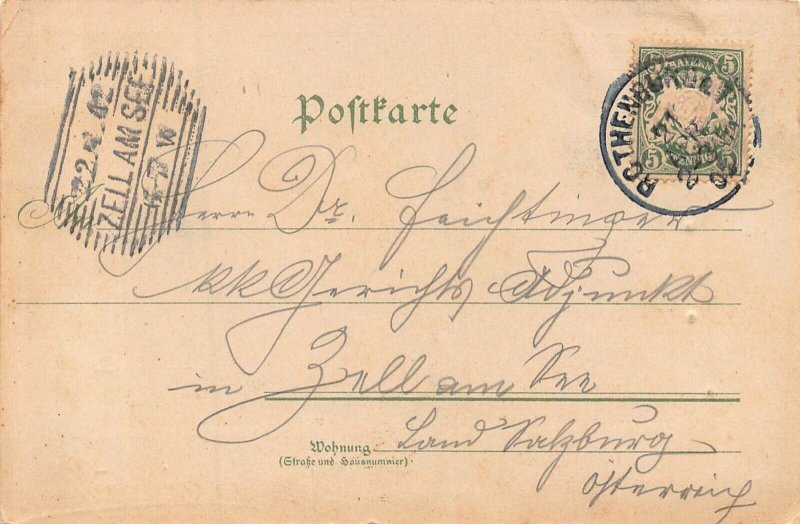 BAYERN
5 5
5 PFENNIG 5
ROTHENBURG
22. 02
ZELL AM SEE
Postkarte
An
Herrn Dr. Feichtinger
kk Gerichts Adjunkt
in Zell am See
Wohnung
(Straße und Hausnummer)
Land Salzburg
Österreich